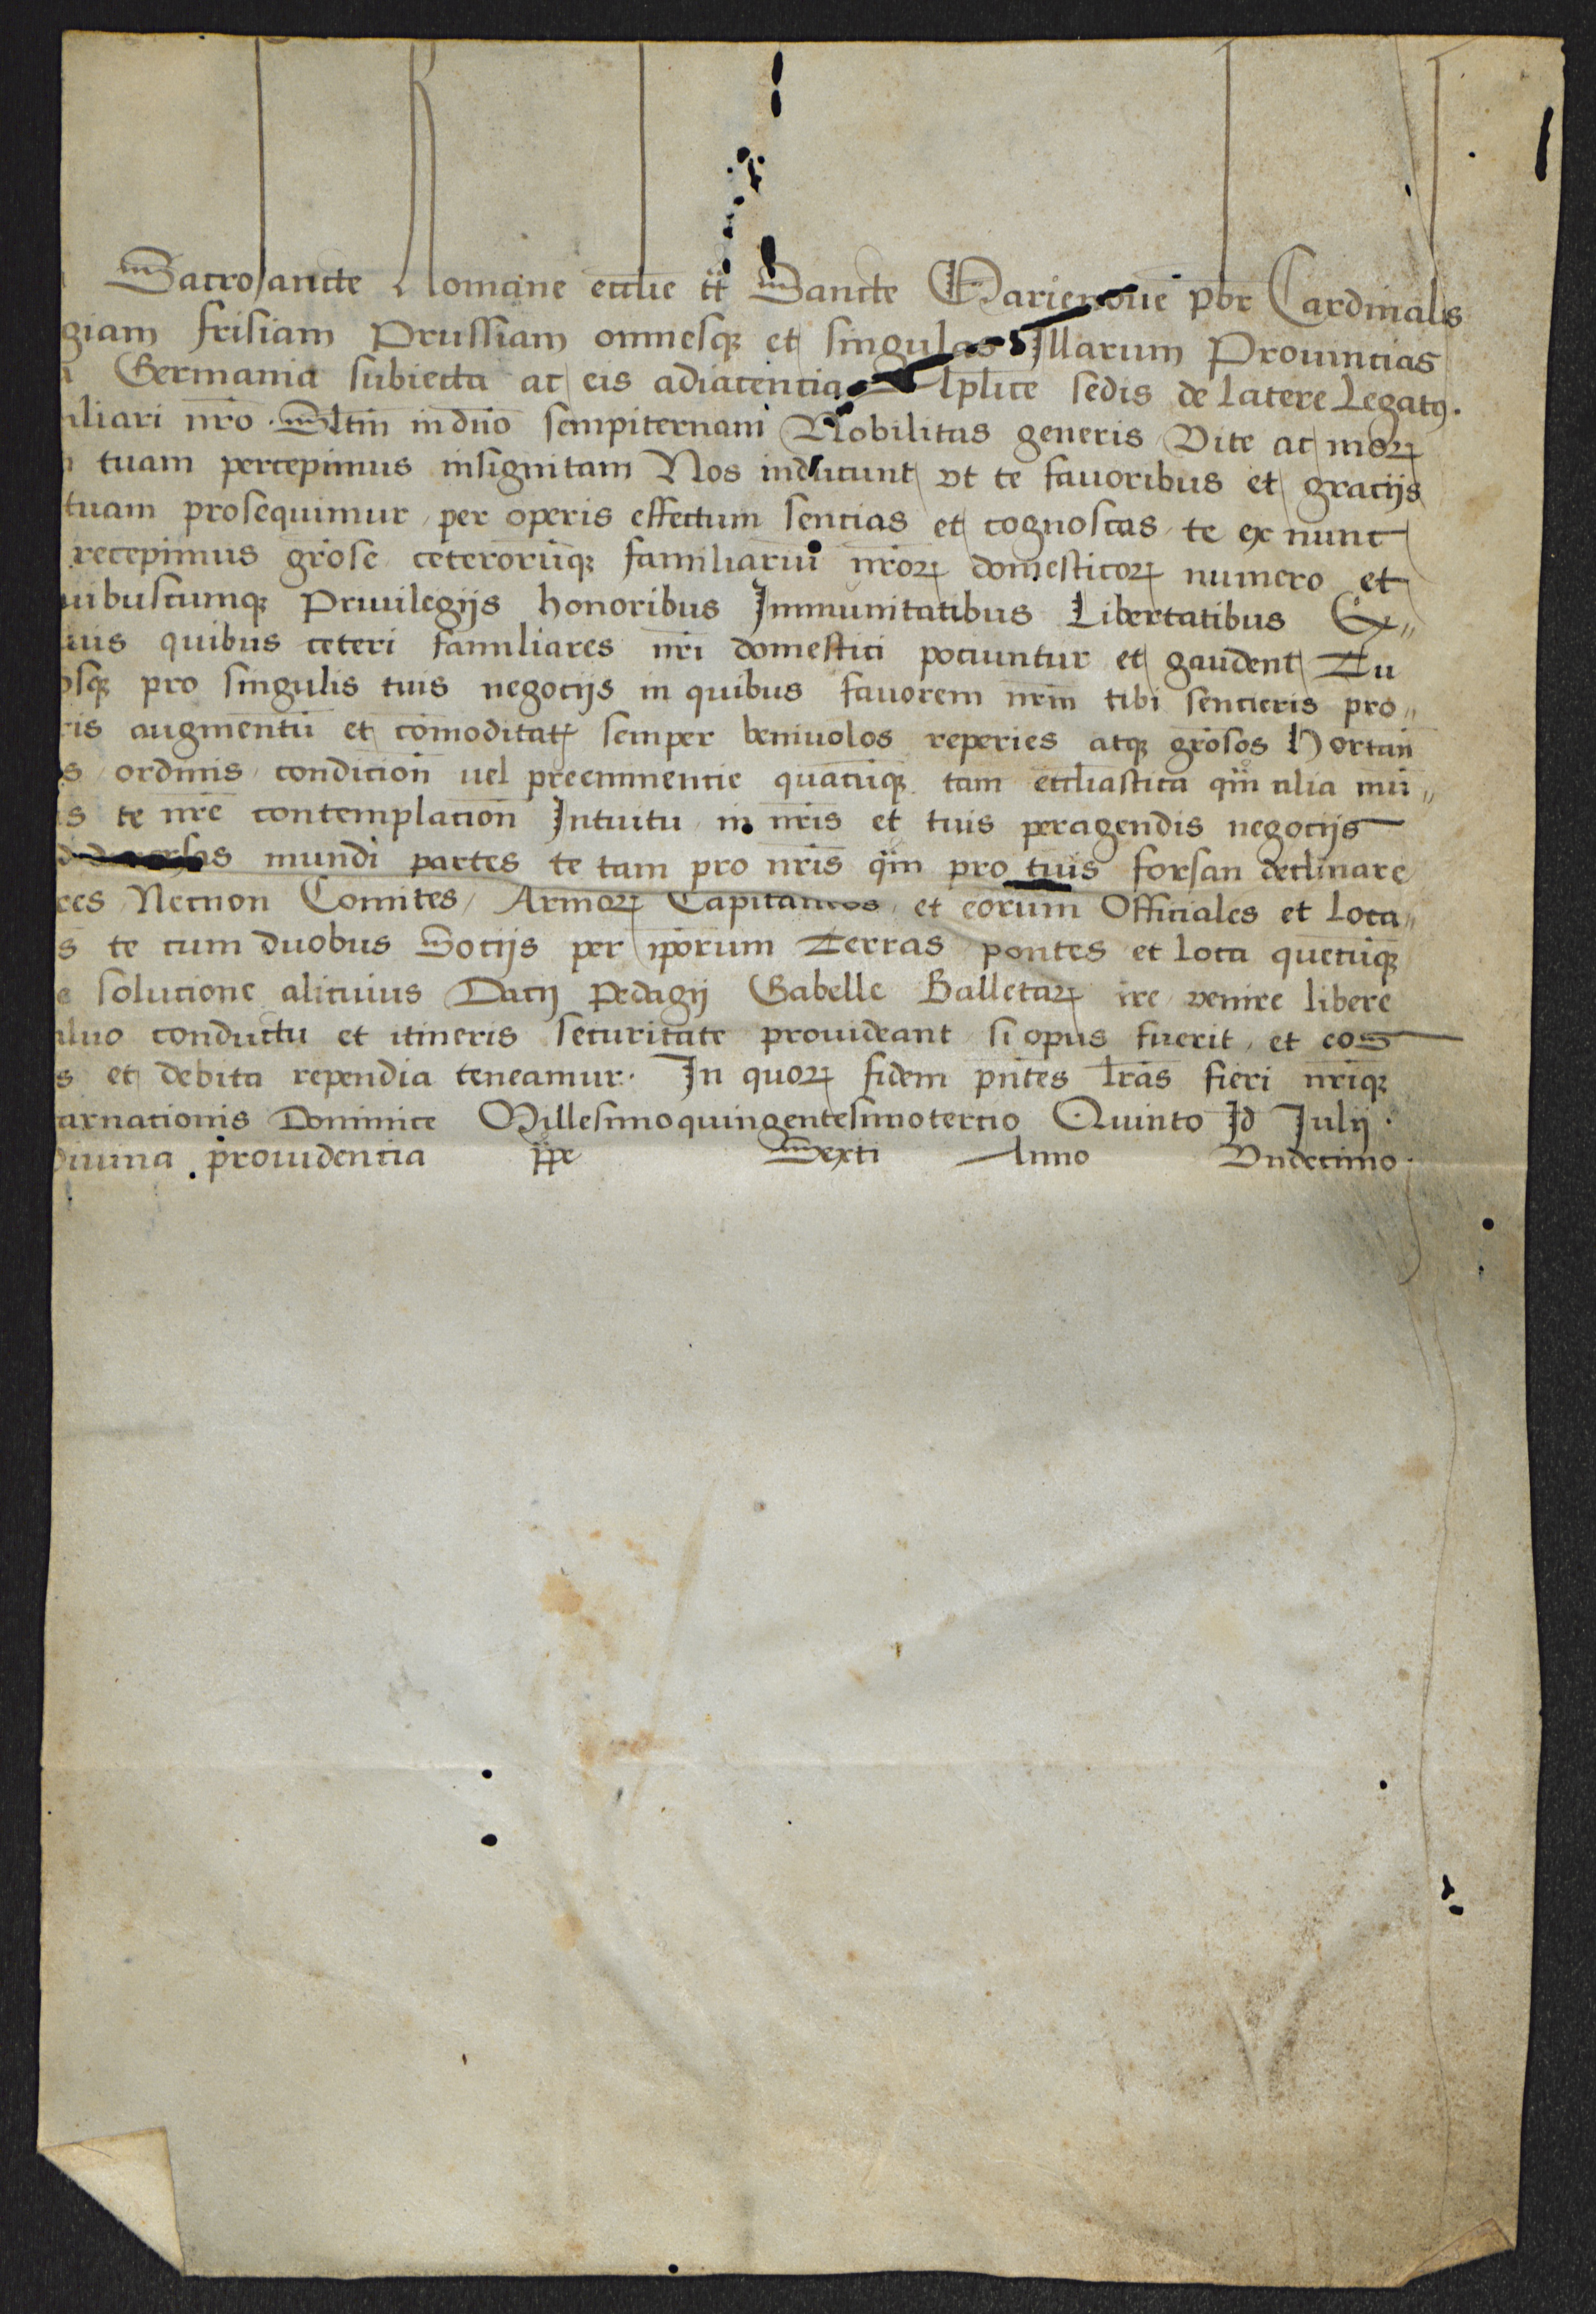 Sacrosancte Romane eccl̄ie tt̄ Sancte Marienoue pb̄r Cardinalis
giam frisiam Prussiam omnesqꝫ et singulas Illarum Prouincias
Germania subiecta ac eis adiacencia Ap̄lice sedis de latere Legatꝰ.
iliari nr̄o. Sltm̄ in dn̄o sempiternam Nobilitas generis Vite ac moꝝ
tuam percepimus insignitam Nos inducunt vt te fauoribus et gracijs
tuam prosequimur per operis effectum sencias et cognoscas te ex nunc
recepimus gr̄ose ceterorūqꝫ familiariū nr̄oꝝ domesticoꝝ numero et
uibuscumqꝫ Priuilegijs honoribus Immunitatibus Libertatibus Ex„
uis quibus ceteri familiares nr̄i domestici pociuntur et gaudent Tu
osqꝫ pro singulis tuis negocijs in quibus fauorem nr̄m tibi sencieris pro„
ris augmentū et cōmoditatꝫ semper beniuolos reperies atqꝫ gr̄osos Hortan̄
s ordinis condicion̄ uel preeminencie quacūqꝫ tam eccl̄iastica qꝫ̄ alia mū„
is te nr̄e contemplacion̄ Intuitu in nr̄is et tuis peragendis negocijs
d diuersas mundi partes te tam pro nr̄is qꝫ̄ pro tuis forsan declinare
ces Necnon Comites Armoꝝ Capitaneos et eorum Officiales et Loca„
s te cum duobus Socijs per ip̄orum Terras pontes et loca quecūqꝫ
e solucione alicuius Dacij Pedagij Gabelle Balletaꝝ ire venire libere
aluo conductu et itineris securitate prouideant si opus fuerit et eos
s et debita rependia teneamur. In quoꝝ fidem pn̄tes lr̄as fieri nr̄iqꝫ
arnationis Dominice Millesimoquingentesimotercio Quinto Id Julij.
diuina prouidentia pp̄e Sexti Anno Vndecimo.